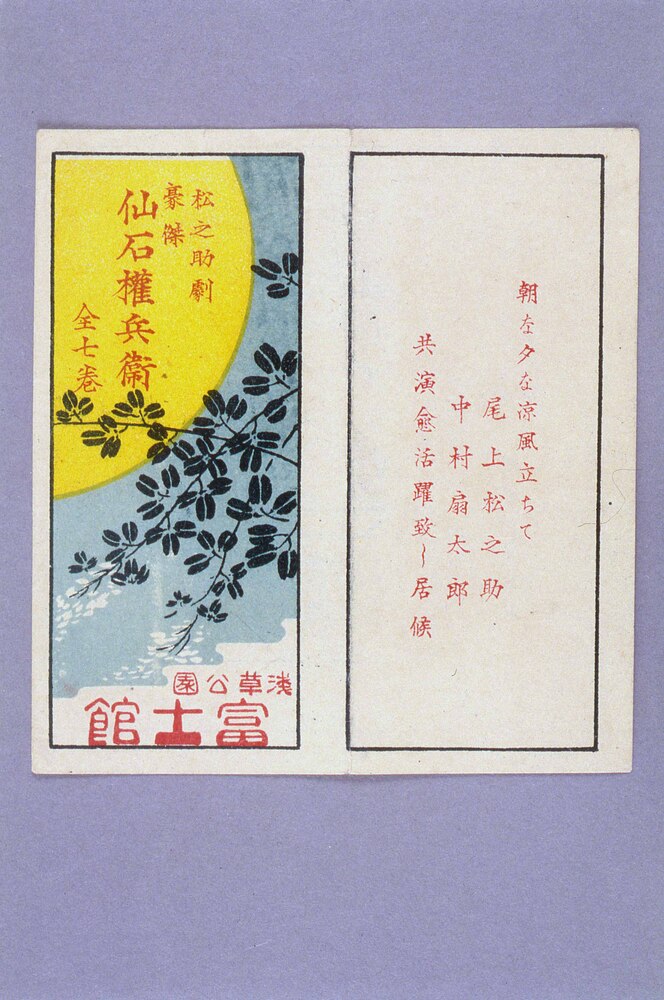 朝な夕な涼風立ちて
尾上松之助
中村扇太郎
共演愈活躍致し居候
松之助劇
豪傑
仙石權兵衞
全七巻
浅草公園
富士館